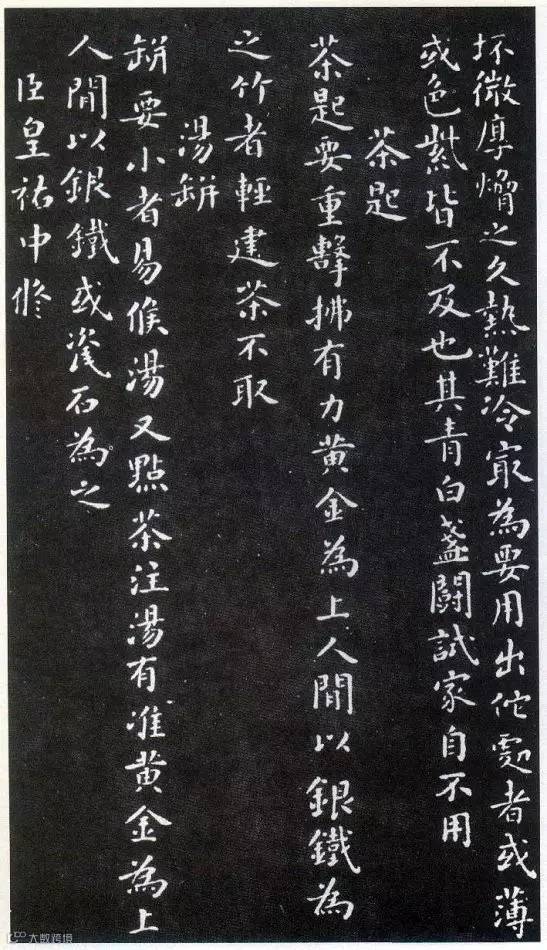 坏微厚熁之久熱難冷最為要用出佗處者或薄
或色紫皆不及也其青白盞鬭試家自不用
茶匙
茶匙要重擊拂有力黃金為上人間以銀鐵為
之竹者輕建茶不取
湯缾
缾要小者易候湯又點茶注湯有准黃金為上
人間以銀鐵或瓷石為之
臣皇祐中修
大數跨境